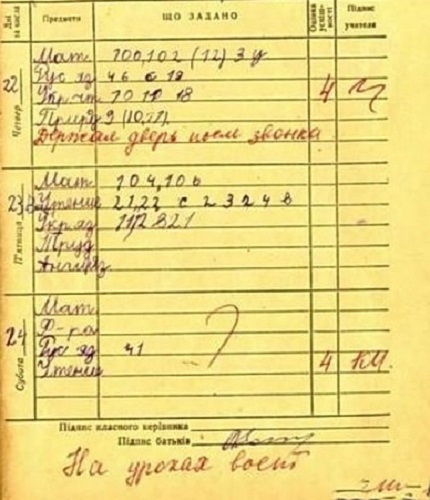 Дні та числа Предмети ЩО ЗАДАНО Оцінка успішності Підпис учителя
Мат. 100,102 (12) 3 у
22 Четвер Рус яз 46 с 18
Укр чт 70 18 4
Природ 9 (10,11)
Держал дверь после звонка
Мат. 104,106
23 П'ятниця Чтение 21,22 с 23 24 в
Укр яз
Труд
Англ яз
24 Субота Мат.
Ф-ра
Рус яз 41
Чтение 4 КМ.
Підпис класного керівника
Підпис батьків
На уроках воет